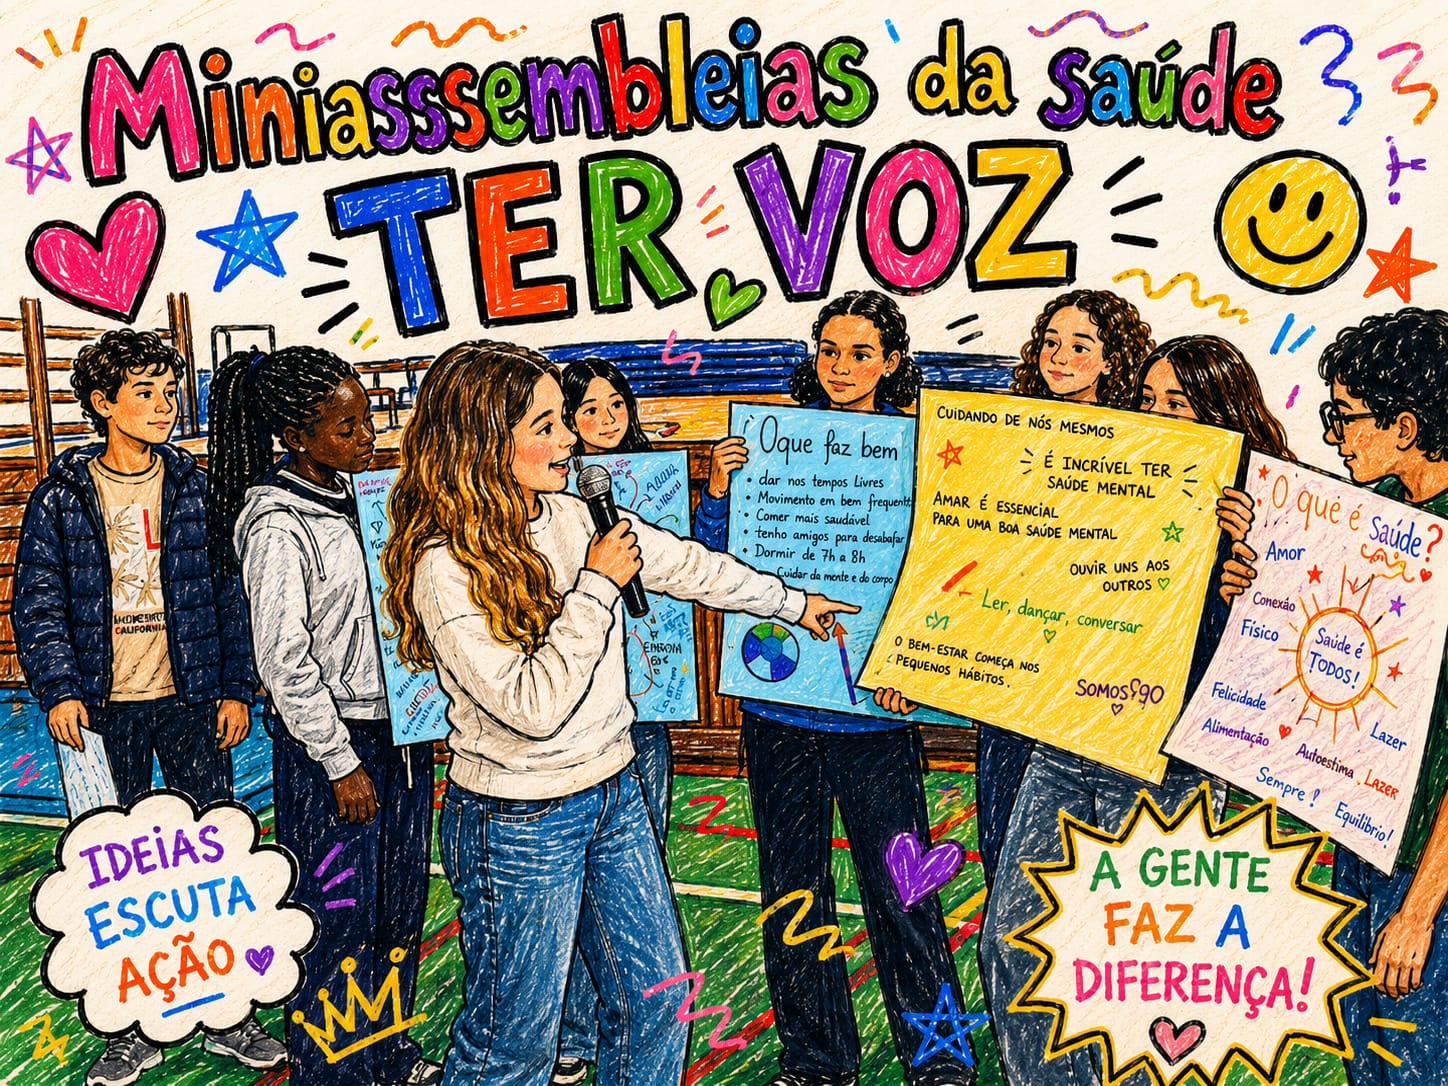 Miniasssembleias da saúde
TER VOZ
O que faz bem
• dar nos tempos Livres
• Movimento em bem frequent
• Comer mais saudável
• tenho amigos para desabafar
• Dormir de 7h a 8h
Cuidar da mente e do corpo
CUIDANDO DE NÓS MESMOS
É INCRÍVEL TER
SAÚDE MENTAL
AMAR É ESSENCIAL
PARA UMA BOA SAÚDE MENTAL
OUVIR UNS AOS
OUTROS
Ler, dançar, conversar
O BEM-ESTAR COMEÇA NOS
PEQUENOS HÁBITOS.
O que é saúde?
Amor
Conexão
Físico
Saúde é
TODOS!
Felicidade
Alimentação
Autoestima
Lazer
LAZER
Sempre!
Equilíbrio!
CALIFORNIA
IDEIAS
ESCUTA
AÇÃO
A GENTE
FAZ A
DIFERENÇA!